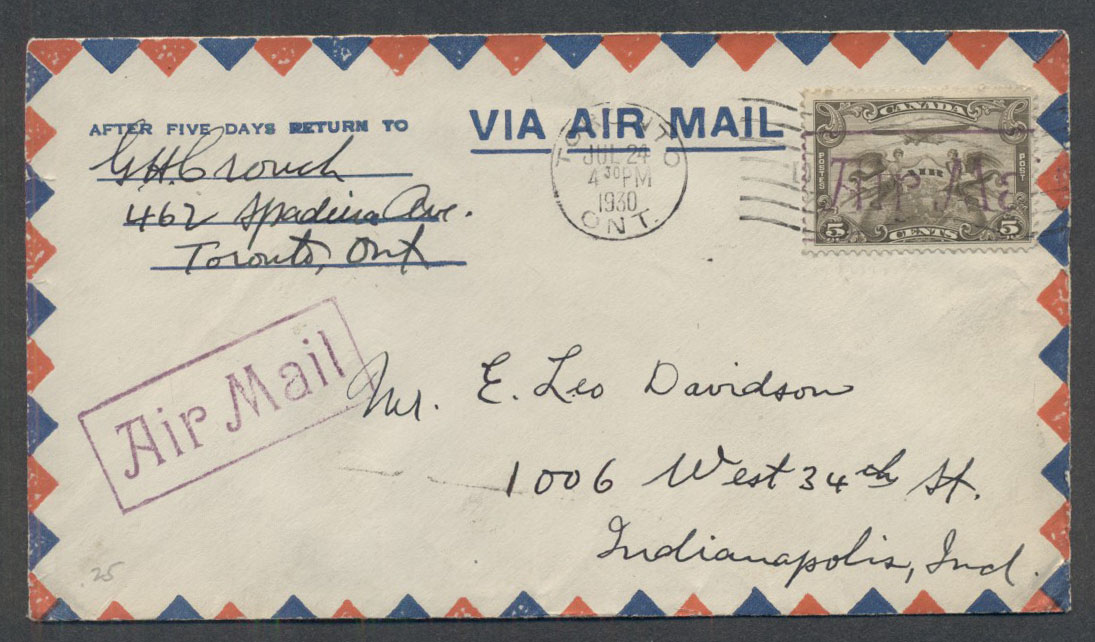 AFTER FIVE DAYS RETURN TO
G.H. Crouch
462 Spadina Ave.
Toronto, Ont
VIA AIR MAIL
TORONTO
JUL 24
4 30 PM
1930
ONT.
CANADA
POSTES
AIR
POST
5 CENTS 5
Air Ma
Air Mail
Mr. E. Leo Davidson
1006 West 34th St.
Indianapolis, Ind.
.25